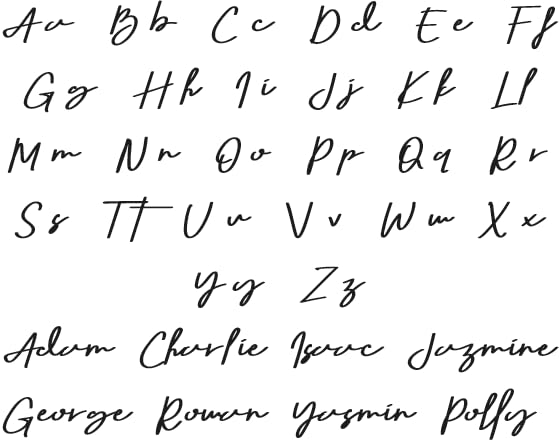 Aa Bb Cc Dd Ee Ff
Gg Hh Ii Jj Kk Ll
Mm Nn Oo Pp Qq Rr
Ss Tt Uu Vv Ww Xx
Yy Zz
Adam Charlie Isaac Jazmine
George Rowan Yasmin Polly